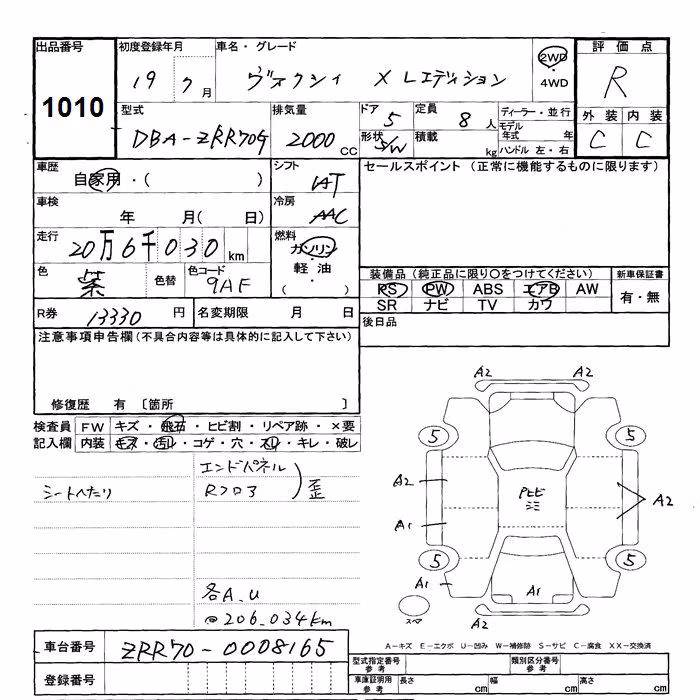 出品番号 初度登録年月 車名・グレード 評価点
1010 19 7月 ヴォクシィ X Lエディション 2WD R
・4WD
型式 排気量 ドア 5 定員 8 人 ディーラー・並行 外装 内装
DBA-ZRR70G 2000 CC 形状 S/W 積載 kg モデル年式 年 C C
ハンドル 左・右
車歴 シフト セールスポイント (正常に機能するものに限ります)
自家用・( ) IAT
車検 冷房
年 月( 日) AAC
走行 燃料
20万6千030km ガソリン
色 色替 色コード 軽油 装備品 (純正品に限り○をつけてください) 新車保証書
紫 9AF ( ) PS PW ABS エアB AW 有・無
SR ナビ TV カワ
R券 13330 円 名変期限 月 日 後日品
注意事項申告欄 (不具合内容等は具体的に記入して下さい)
修復歴 有 〔箇所 〕
A2 A2
検査員 FW キズ・飛石・ヒビ割・リペア跡・×要
記入欄 内装 キズ・汚レ・コゲ・穴・スレ・キレ・破レ
5 5
エンドパネル
シートへたり Rフロア 歪
A2 A2
A1
5 5
A1 A1
各A.U
@206.034km
スマ A2
A-キズ E-エクボ U-凹み W-補修跡 S-サビ C-腐食 XX-交換済
車台番号 ZRR70-0008165
登録番号
型式指定番号 参考 類別区分番号 参考
車庫証明用 参考 長さ cm 幅 cm 高さ cm